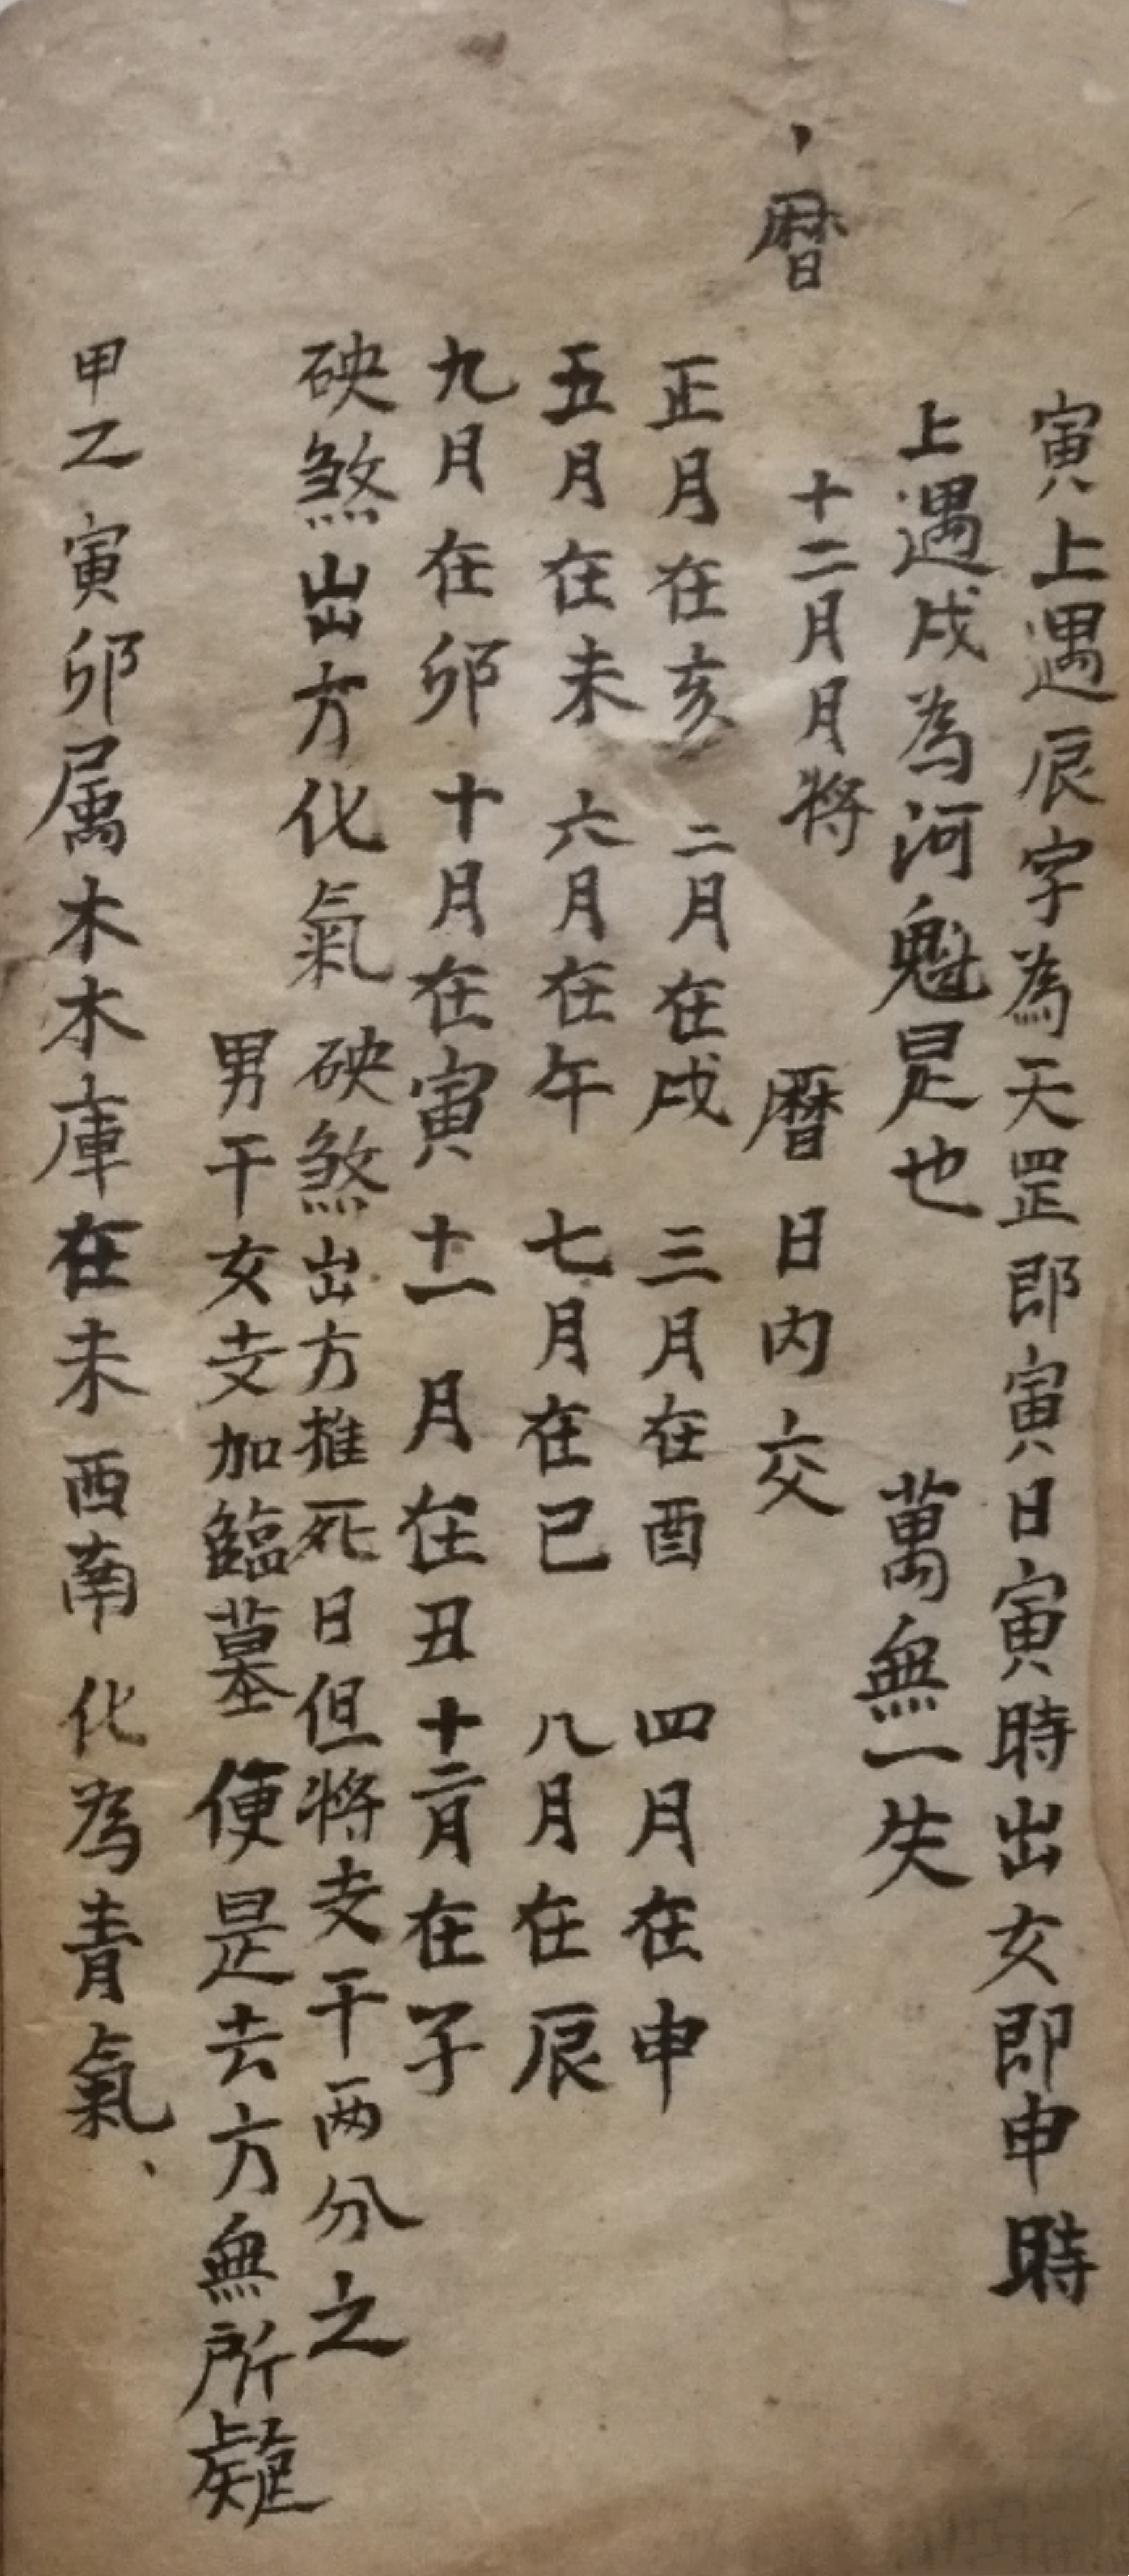 寅上遇辰字為天罡即寅日寅時出女即申時
上遇戌為河魁是也 萬無一失
、曆 十二月月將 曆日内交
正月在亥 二月在戌 三月在酉 四月在申
五月在未 六月在午 七月在巳 八月在辰
九月在卯 十月在寅 十一月在丑 十二月在子
砄煞出方化氣 砄煞出方推死日但將支干两分之
男干女支加臨墓便是去方無所疑
甲乙寅卯属木木庫在未西南化為青氣、